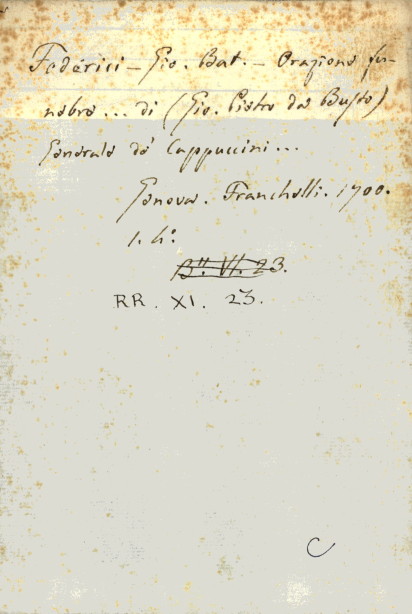 Federici - Gio. Bat. - Orazione fu-
nebre... di (Gio. Pietro da Busto)
Generale de' Cappuccini...
Genova. Franchelli. 1700.
1. 4°.
B". VI. 23.
RR. XI. 23.
C